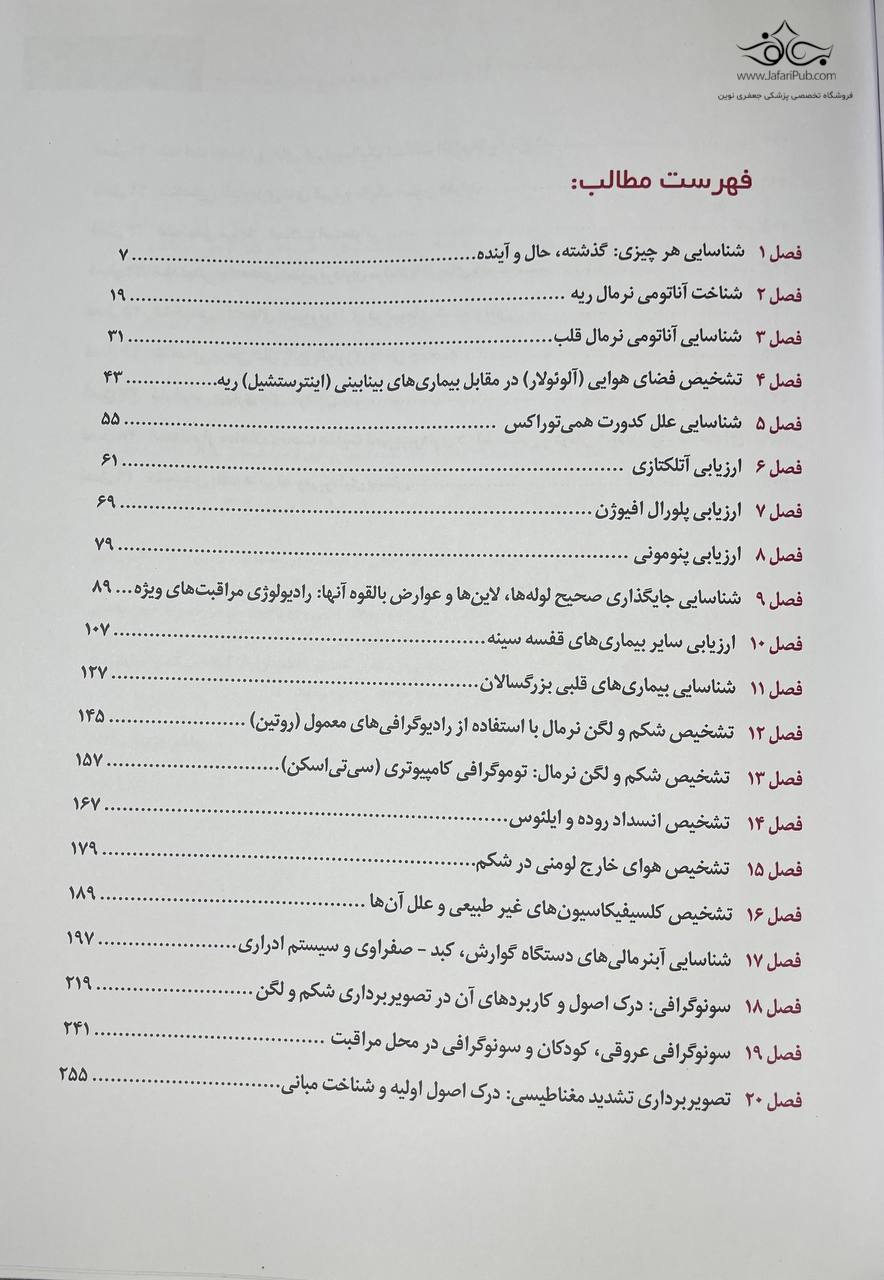 www.JafariPub.com
فروشگاه تخصصی پزشکی جعفری نوین
فهرست مطالب:
فصل ۱ شناسایی هر چیزی: گذشته، حال و آینده ۷
فصل ۲ شناخت آناتومی نرمال ریه ۱۹
فصل ۳ شناسایی آناتومی نرمال قلب ۳۱
فصل ۴ تشخیص فضای هوایی (آلوئولار) در مقابل بیماری‌های بینابینی (اینترستشیل) ریه ۴۳
فصل ۵ شناسایی علل کدورت همی‌توراکس ۵۵
فصل ۶ ارزیابی آتلکتازی ۶۱
فصل ۷ ارزیابی پلورال افیوژن ۶۹
فصل ۸ ارزیابی پنومونی ۷۹
فصل ۹ شناسایی جایگذاری صحیح لوله‌ها، لاین‌ها و عوارض بالقوه آنها: رادیولوژی مراقبت‌های ویژه ۸۹
فصل ۱۰ ارزیابی سایر بیماری‌های قفسه سینه ۱۰۷
فصل ۱۱ شناسایی بیماری‌های قلبی بزرگسالان ۱۲۷
فصل ۱۲ تشخیص شکم و لگن نرمال با استفاده از رادیوگرافی‌های معمول (روتین) ۱۴۵
فصل ۱۳ تشخیص شکم و لگن نرمال: توموگرافی کامپیوتری (سی‌تی‌اسکن) ۱۵۷
فصل ۱۴ تشخیص انسداد روده و ایلئوس ۱۶۷
فصل ۱۵ تشخیص هوای خارج لومنی در شکم ۱۷۹
فصل ۱۶ تشخیص کلسیفیکاسیون‌های غیر طبیعی و علل آن‌ها ۱۸۹
فصل ۱۷ شناسایی آبنرمالی‌های دستگاه گوارش، کبد - صفراوی و سیستم ادراری ۱۹۷
فصل ۱۸ سونوگرافی: درک اصول و کاربردهای آن در تصویربرداری شکم و لگن ۲۱۹
فصل ۱۹ سونوگرافی عروقی، کودکان و سونوگرافی در محل مراقبت ۲۴۱
فصل ۲۰ تصویربرداری تشدید مغناطیسی: درک اصول اولیه و شناخت مبانی ۲۵۵